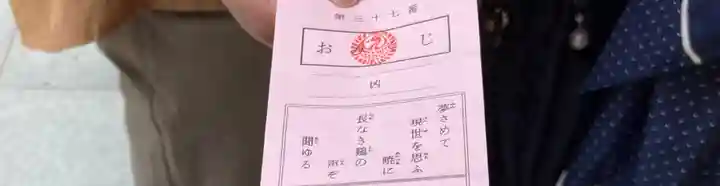 第三十七番
おみくじ
凶
夢さめて
現世を思ふ
暁に
長なき鶏の
雨ぞ
聞ゆる